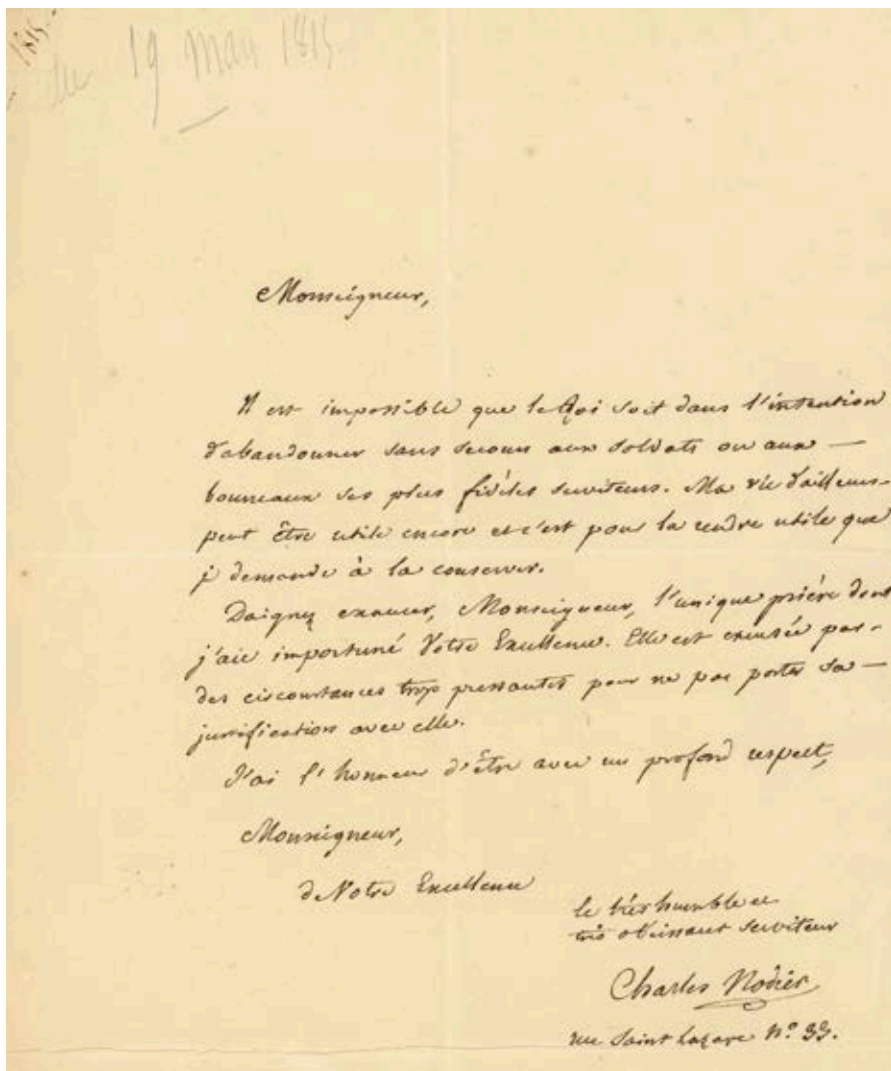 1815.
du 19 mars 1815.
Monseigneur,
Il est impossible que le Roi soit dans l'intention
d'abandonner sans secours aux soldats ou aux —
bourreaux ses plus fidèles serviteurs. Ma vie d'ailleurs
peut être utile encore et c'est pour la rendre utile que
je demande à la conserver.
Daignez exaucer, Monseigneur, l'unique prière dont
j'aie importuné Votre Excellence. Elle est excusée par
des circonstances trop pressantes pour ne pas porter sa —
justification avec elle.
J'ai l'honneur d'être avec un profond respect,
Monseigneur,
de Votre Excellence
le très humble et
très obéissant serviteur
Charles Nodier
rue Saint Lazare N.º 33.